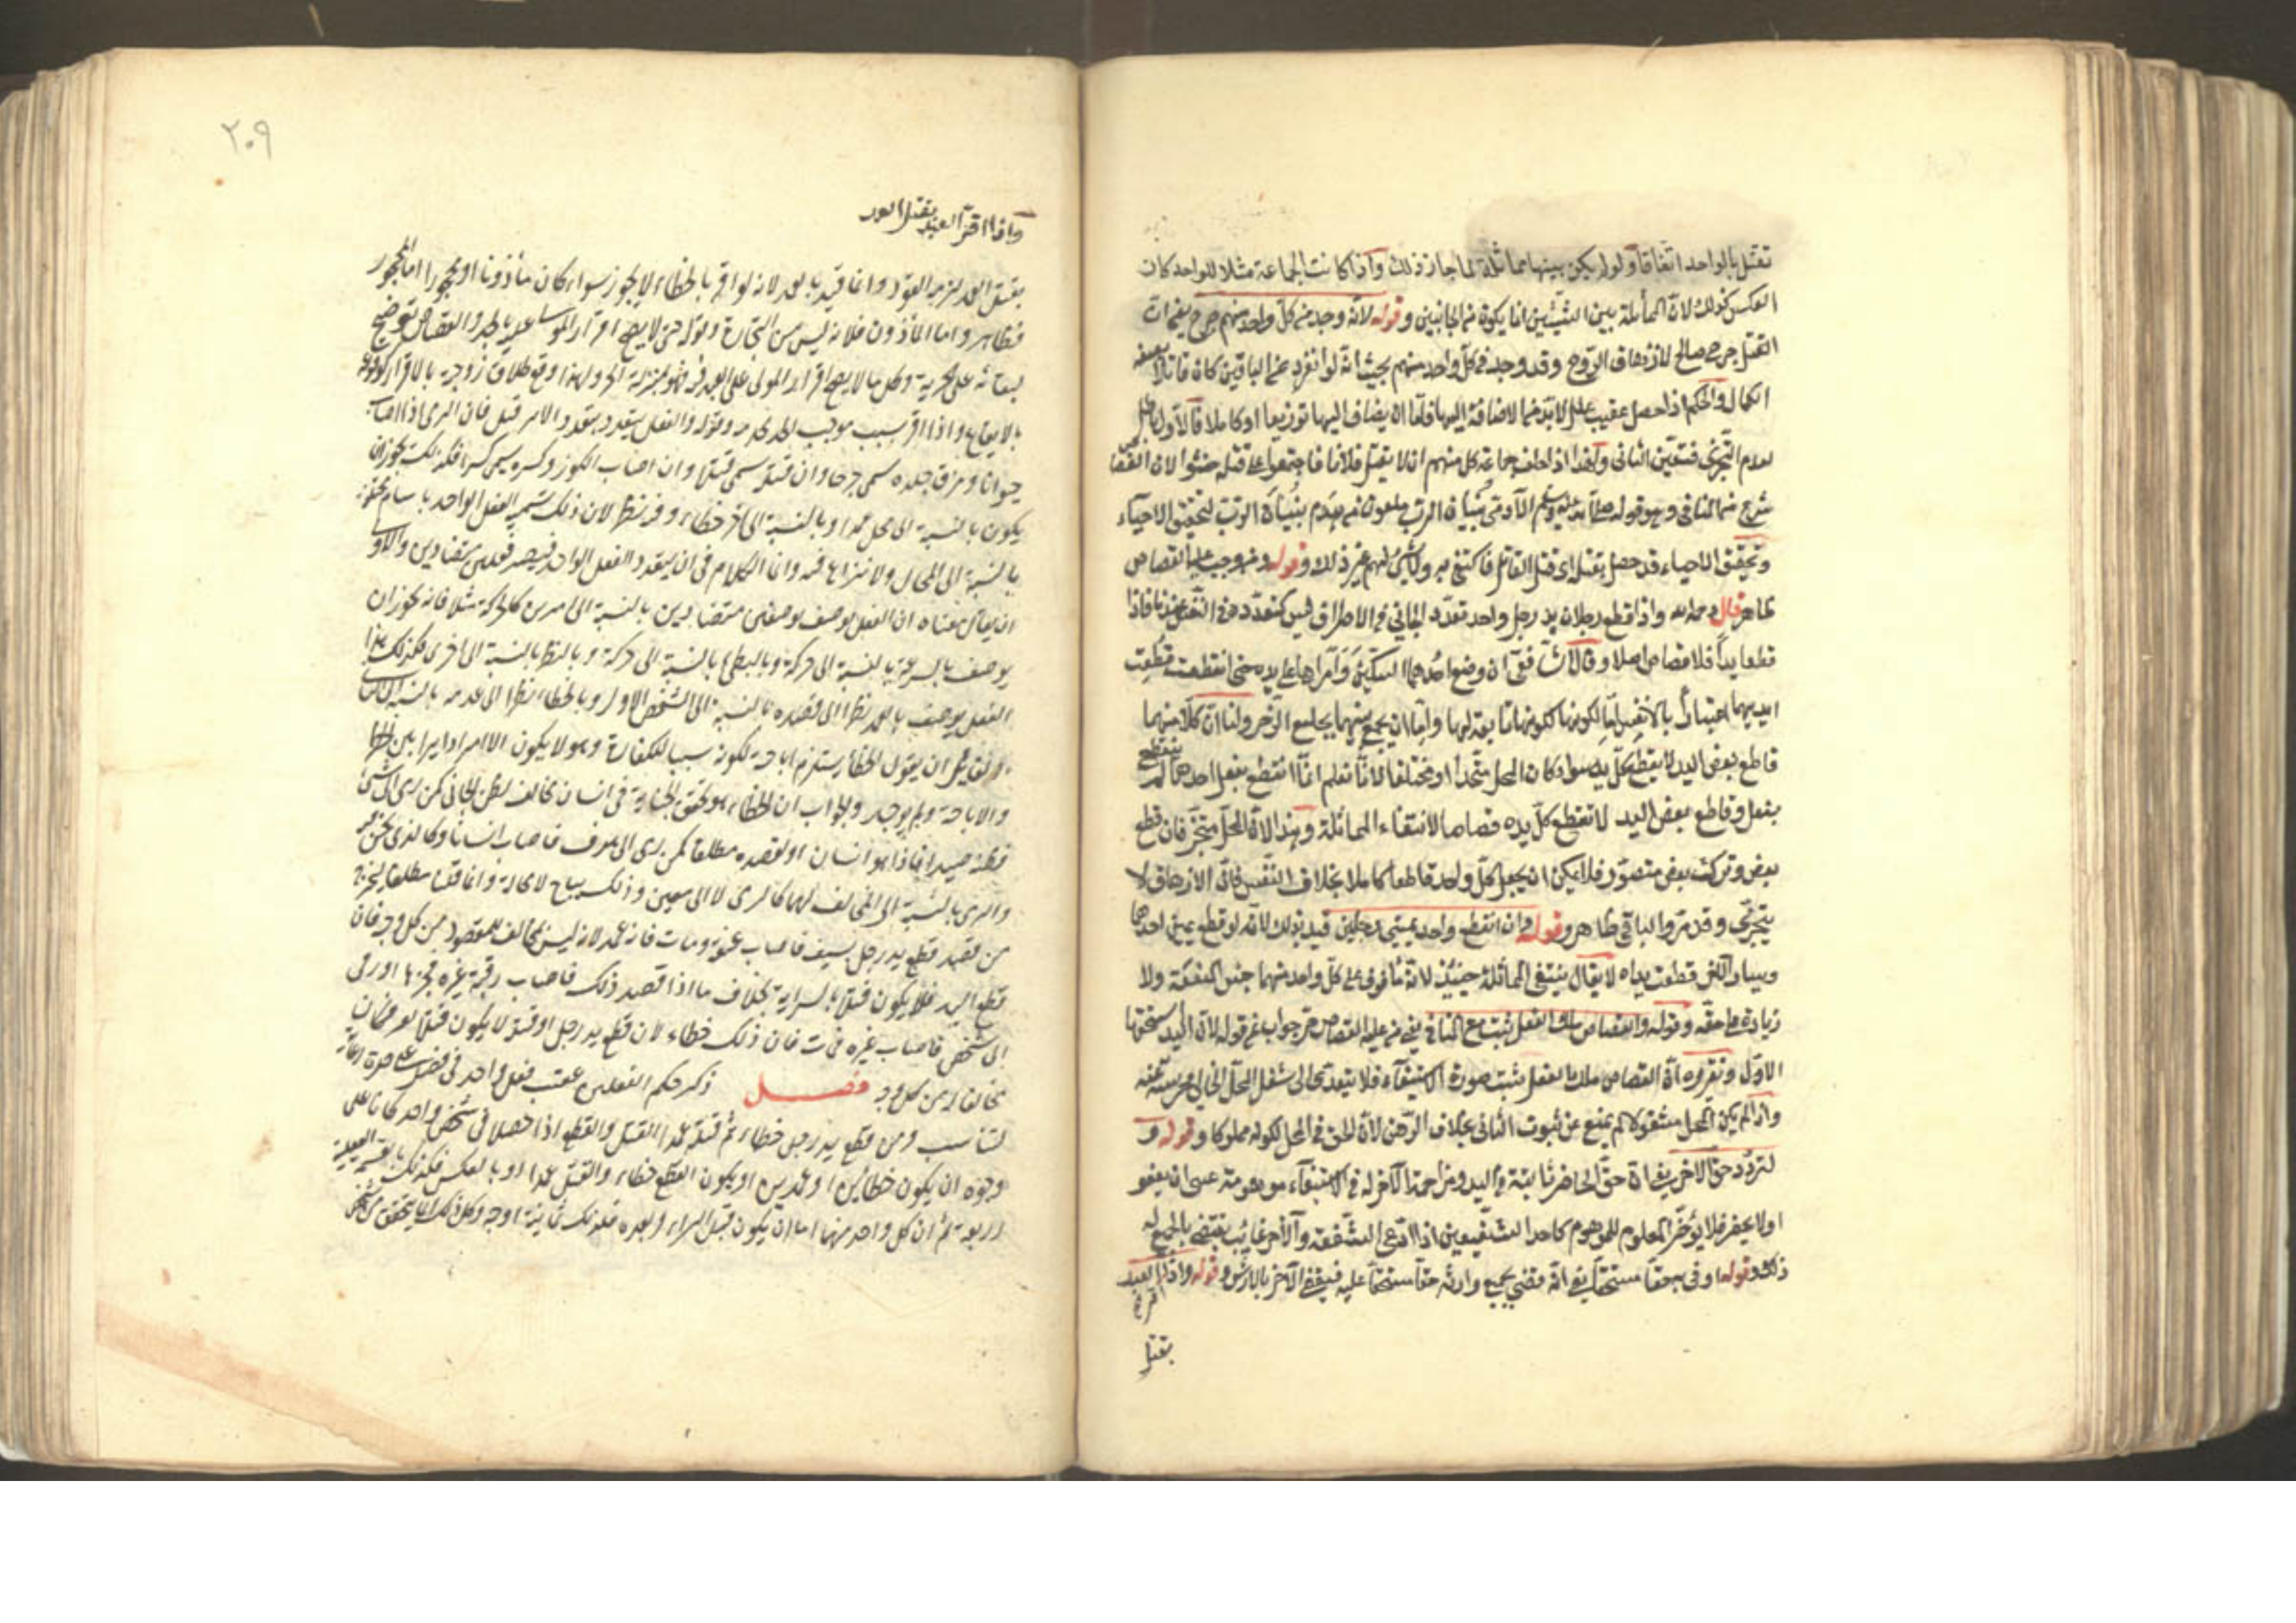 تقتل بالواحد اتفاقا ولو لم يكن بينهما مماثلة لما جاز ذلك واذا كانت الجماعة مثلا للواحد كان
العكس كذلك لان المماثلة بين الشيئين انما يكون من الجانبين وقوله لانه وجد من كل واحد منهم جرح يعني ان
القتل جرح صالح لازهاق الروح وقد وجد في كل واحد منهم بحيث انه لو انفرد عن الباقين كان قاتلا بصفة
الكمال والحكم اذا حصل عقيب علل لابد من الاضافة اليها فاما ان يضاف اليها توزيعا او كاملا فالاول باطل
لعدم التجزي فتعين الثاني ولهذا اذا حلف جماعة كل منهم ان لا يقتل فلانا فاجتمعوا على قتله حنثوا لان القصاص
شرع مع المنافي وهو قوله صلى الله عليه وسلم الآدمي بنيان الرب ملعون من هدم بنيان الرب لتحقيق الاحياء
وتحقيق الاحياء قد حصل بقتله اي قتل القاتل فاكتفي به ولا شئ لهم غير ذلك وقوله ومن وجب عليه القصاص
ظاهر قال رحمه الله واذا قطع رجلان يد رجل واحد تعدد الجاني في الاطراف ليس كتعدده في النفس عندنا فاذا
قطعا يدا فلا قصاص اصلا وقال الشافعي ان وضع احدهما السكين وأمرّاها على يده حتى انقطعت قطعت
ايديهما اعتبارا بالانفس اما لكونها تابعة لها واما ان يجمع بينهما بجامع الزجر ولنا ان كلا منهما
قاطع بعض اليد لا يقطع كل يده سواء كان المحل متحدا او مختلفا لانا نعلم ان ما انقطع بفعل احدهما لم ينقطع
بفعل وقاطع بعض اليد لا تقطع كل يده قصاصا لانتفاء المماثلة وهذا لان المحل متجز فان قطع
بعض وترك بعض متصور فلا يمكن ان يجعل كل واحد قاطعا كاملا بخلاف النفس فان الازهاق لا
يتجزى وقد مر والباقي ظاهر وقوله وان قطع واحد يميني رجلين قيد بذلك لانه لو قطع يمين احدهما
ويسار الآخر قطعت يداه لا يقال ينتفي المماثلة حينئذ لانه ما فوت على كل واحد منهما جنس المنفعة ولا
زيادة على حقه وقوله والقصاص ملك الفعل يثبت مع المنافي جواب عن قوله لان اليد استحقها
الاول وتقريره ان القصاص ملك الفعل يثبت صورة الاستيفاء فلا يتعدى الى شغل المحل الخالي
واذا لم يكن المحل مشغولا لم يمنع عن ثبوت الثاني بخلاف الرهن لان الحق في المحل لكونه مملوكا وقوله و
لتردد حق الاخر يعني ان حق الحاضر ثابتة في اليد ومزاحمة الآخر له في الاستيفاء موهومة عسى ان يعفو
او لا يحضر فلا يؤخر المعلوم للموهوم كاحد الشفيعين اذا ادعى الشفعة والآخر غائب يقضى بالجميع له
ذلك وقوله اوفى به حقا مستحقا يعني انه قضى بجميع حقا مستحقا عليه فيقضي الآخر بالارش وقوله واذا اقر العبد
بقتل
٢٠٩
واذا اقر العبد بقتل العمد
بقتل العمد لزمه القود وانما قيد بالعمد لانه لو اقر بالخطاء لا يجوز سواء كان مأذونا او محجورا اما المحجور
فظاهر واما المأذون فلانه ليس من التجارة وقوله حتى لا يصح اقرار المولى عليه بالحد والقصاص توضيح
لبقائه على الحرية وكل ما لا يصح اقرار المولى على العبد فيه فهو بمنزلة الحر ولهذا وقع طلاق زوجته بالاقرار
بالايقاع واذا اقر بسبب موجب الحد وقوله والفعل يتعدد بتعدد الاثر قيل فان الرمي اذا اصاب
حيوانا ومزق جلده سمي جرحا وان قتله سمي قتلا وان اصاب الكوز وكسره سمي كسرا فكذلك يجوز ان
يكون بالنسبة الى محل عمدا وبالنسبة الى آخر خطاء وفيه نظر لان ذلك تسمية الفعل الواحد باسام مختلفة
بالنسبة الى المحال ولا نزاع فيه وانما الكلام في ان يتعدد الفعل الواحد فيصير فعلين متضادين والاولى
ان يقال معناه ان الفعل يوصف بوصفين متضادين بالنسبة الى امرين كالحركة مثلا فانه يجوز ان
يوصف بالسرعة بالنسبة الى حركة وبالبطئ بالنسبة الى حركة اخرى فكذلك هذا
الفعل يوصف بالعمد نظرا الى قصده بالنسبة الى الشخص الاول وبالخطاء نظرا الى عدمه بالنسبة الى الثاني
ولقائل ان يقول الخطأ يستلزم اباحة لكونه سببا للكفارة وهو لا يكون الا امرا دائرا بين الحظر
والاباحة ولم يوجد والجواب ان الخطاء هو تحقق الجناية في انسان مخالف لظن الجاني كمن رمى الى شئ
فظنه صيدا فاذا هو انسان او لقصده مطلقا كمن رمى الى هدف فاصاب انسانا وكالذي نحن فيه
والرمي بالنسبة الى المخالف لهما كالرمي لا الى معين وذلك مباح لا محالة وانما قلنا مطلقا ليخرج
من قصد قطع يد رجل بسيف فاصاب عنقه ومات فانه عمد لانه ليس بمخالف للمقصود من كل وجه فان
قطع اليد فلا يكون قتلا بالسراية بخلاف ما اذا قصد ذلك فاصاب رقبة غيره او رمى
الى شخص فاصاب غيره فمات فان ذلك خطاء لان قطع يد رجل او قتله لا يكون قتلا لغيره فكان
مخالفا له من كل وجه فصل ذكر حكم الفعلين عقيب فعل واحد في فصل على حدة رعاية
لتناسب ومن قطع يد رجل خطاء ثم قتله عمدا القتل والقطع اذا حصلا في شخص واحد كانا على
وجوه ان يكون خطائين او عمدين او يكون القطع خطاء والقتل عمدا او بالعكس فكذلك بالقسمة العقلية
اربعة ثم ان كل واحد منها اما ان يكون قبل البراء او بعده فذلك ثمانية اوجه وكل ذلك اما يتحقق من شخص